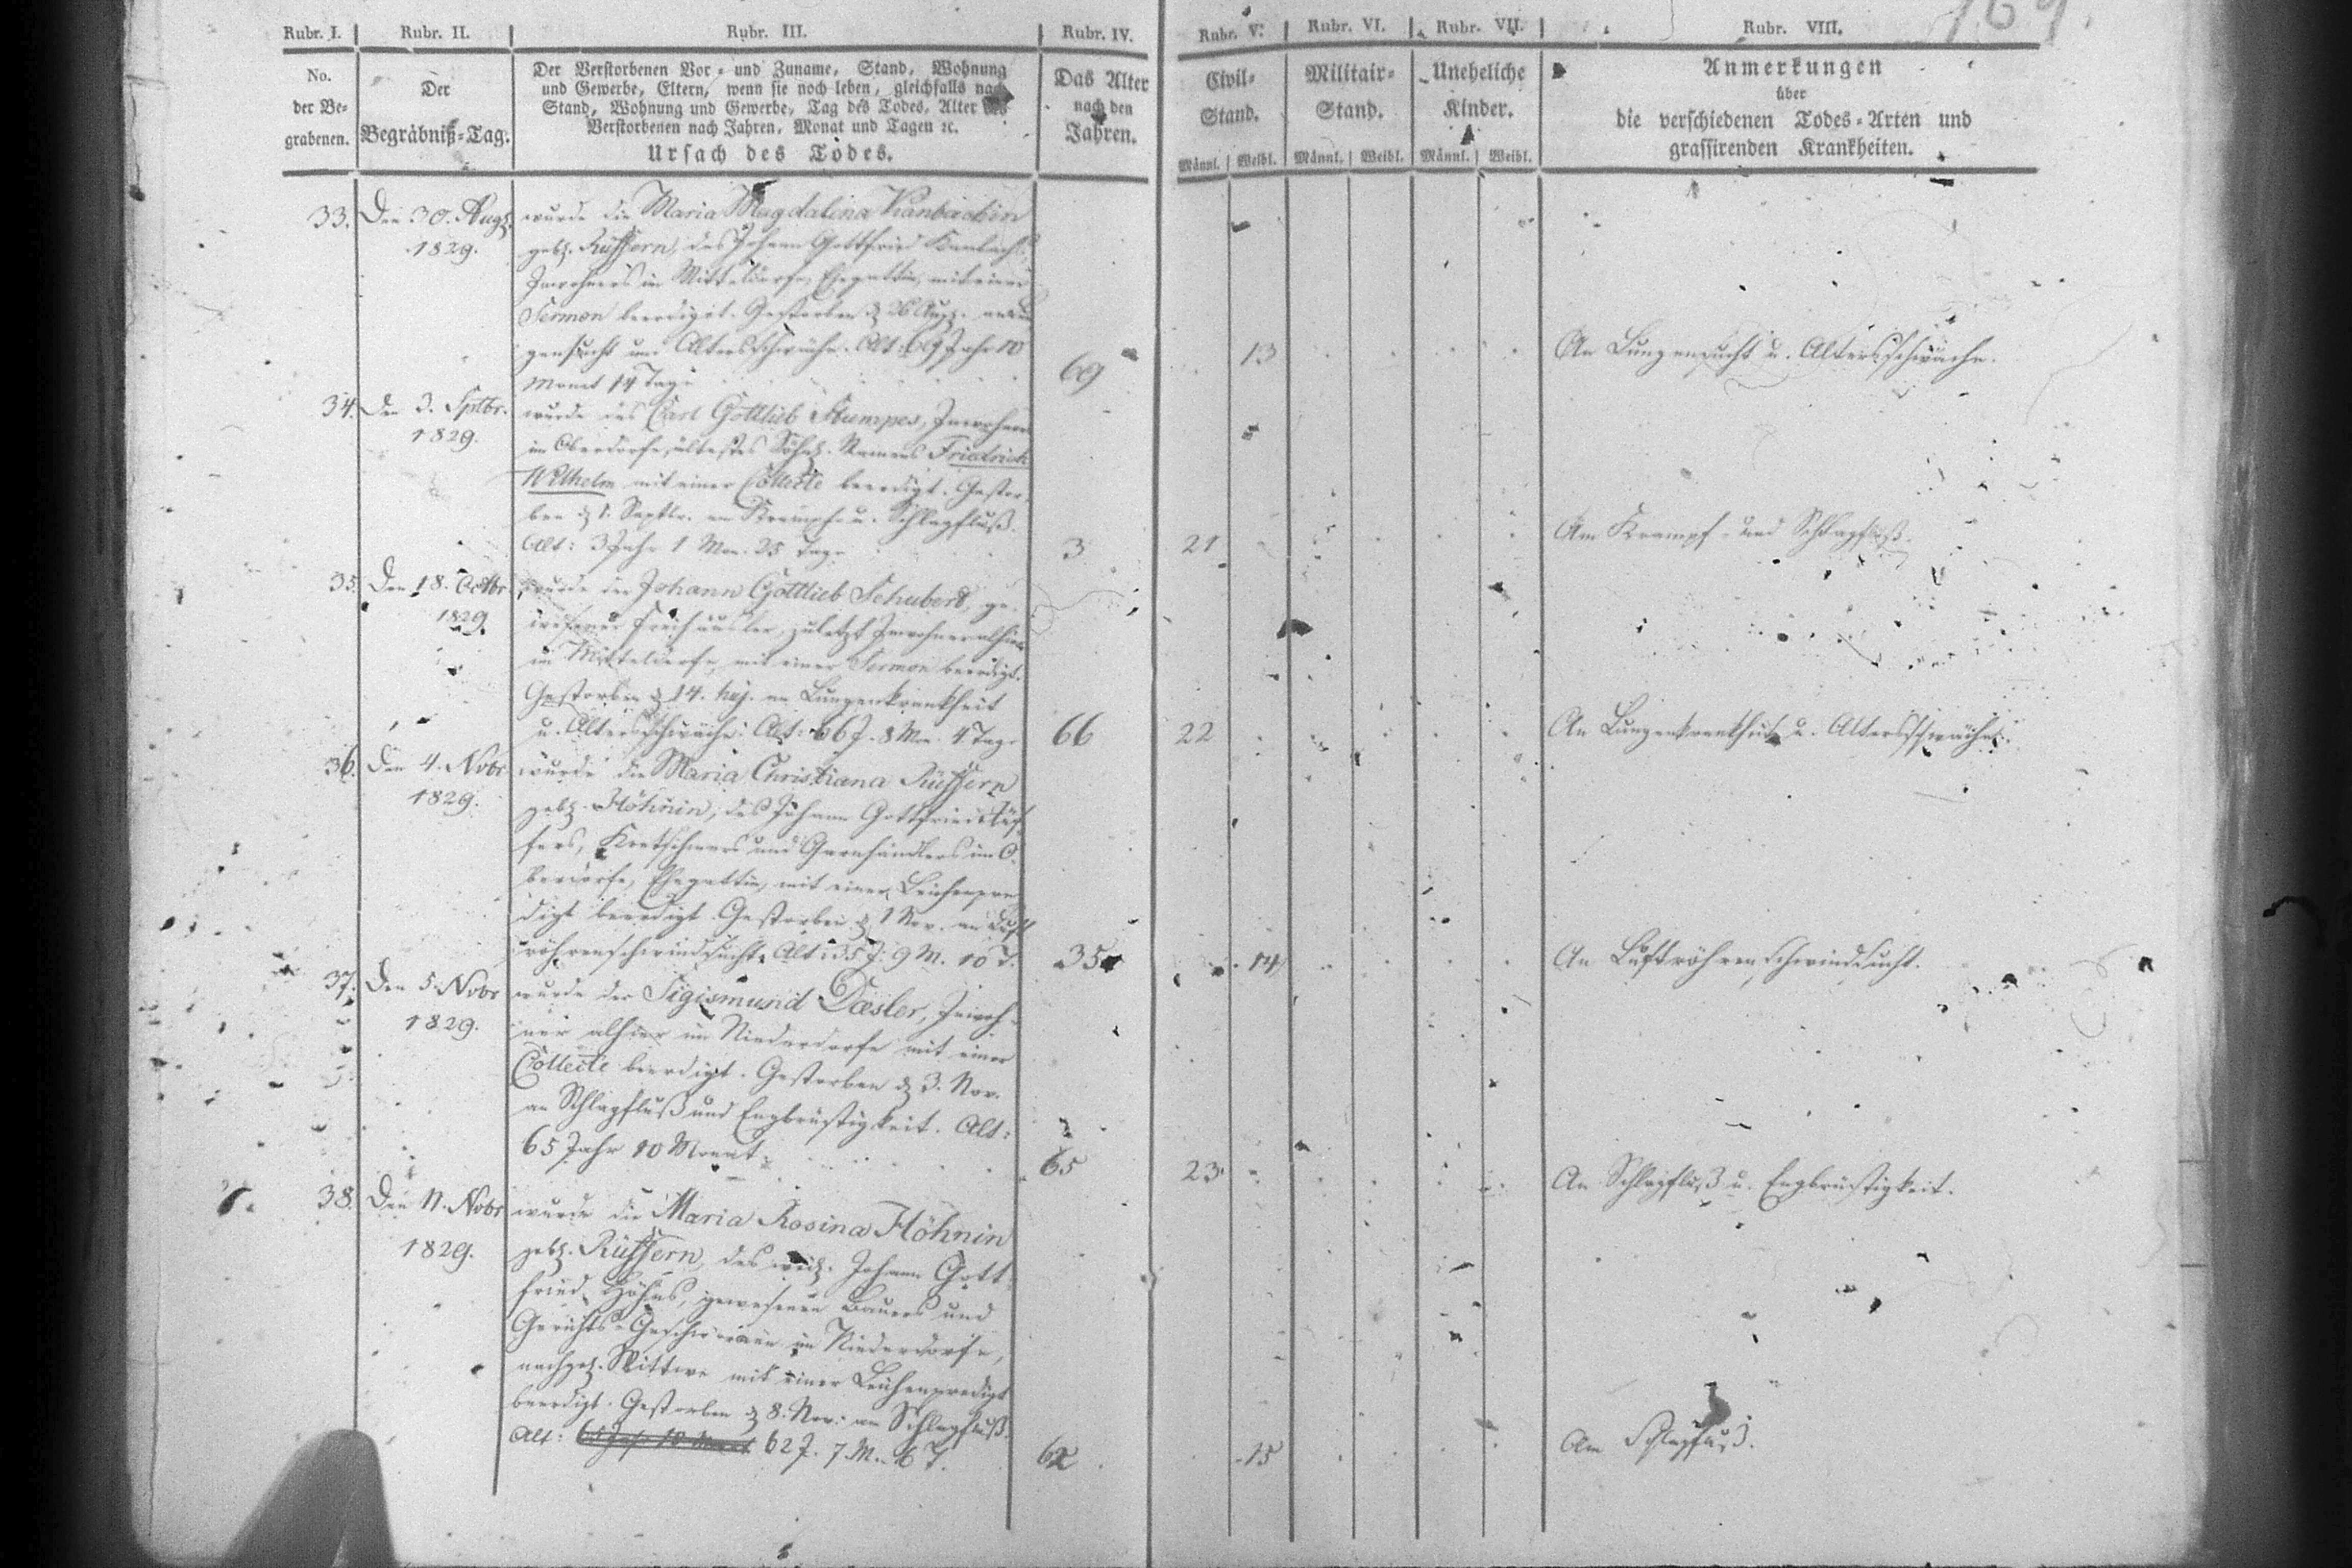 169.
Rubr. I. Rubr. II. Rubr. III. Rubr. IV. Rubr. V. Rubr. VI. Rubr. VII. Rubr. VIII.
No. der Be-grabenen.
Der Begräbniß-Tag.
Der Verstorbenen Vor- und Zuname, Stand, Wohnung
und Gewerbe, Eltern, wenn sie noch leben, gleichfalls nach
Stand, Wohnung und Gewerbe, Tag des Todes, Alter des
Verstorbenen nach Jahren, Monat und Tagen ꝛc.
Ursach des Todes.
Das Alter
nach den
Jahren.
Civil-
Stand.
Männl. Weibl.
Militair-
Stand.
Männl. Weibl.
Uneheliche
Kinder.
Männl. Weibl.
Anmerkungen
über
die verschiedenen Todes-Arten und
grassirenden Krankheiten.
33. Den 30. Augs.
1829.
wurde die Maria Magdalena
geb. Rüffern, des Johann Gottfried
Inwohners in Mitteldorfe, Ehegattin, mit einer
Sermon beerdiget. Gestorben d. 26 Aug. an Lun
gensucht und Altersschwäche. Alt: 69 Jahr 10
Monat 14 Tage
69
13
An Lungensucht u. Altersschwäche.
34. Den 3. Septbr.
1829.
wurde des Carl Gottlieb Stumpes, Inwohners
im Oberdorfe, ältestes Söhn. Namens Friedrich
Wilhelm mit einer Collecte beerdigt. Gestor-
ben d. 1. Septbr. an Krampf- u. Schlagfluß.
Alt: 3 Jahr 1 Mon. 25 Tage
3
21
Am Krampf- und Schlagfluß.
35. Den 18. Octbr
1829.
wurde der Johann Gottlieb Schubert, ge-
wesener Freihäusler, zuletzt Inwohner alhier
im Mitteldorfe, mit einer Sermon beerdigt.
Gestorben d. 14. huj. an Lungenkrankheit
u. Altersschwäche: Alt: 66 J. 8 Mon. 4 Tage
66
22
An Lungenkrankheit u. Altersschwäche.
36. Den 4. Nobr
1829.
wurde die Maria Christiana Rüffern
geb. Höhnin, des Johann Gottfried Rüf-
fers, Kretschmers und Garnhändlers im O-
berdorfe, Ehegattin, mit einer Leichenpre
digt beerdigt. Gestorben d. 1 Nov. an Luft
röhrenschwindsucht. Alt: 35 J. 9 M. 10 T.
35
14
An Luftröhrenschwindsucht.
37. Den 5. Nobr
1829.
wurde der Sigismund Dæsler, Inwoh-
ner alhier im Niederdorfe mit einer
Collecte beerdigt. Gestorben d. 3. Nov.
an Schlagfluß und Engbrüstigkeit. Alt:
65 Jahr 10 Monat
65
23
An Schlagfluß u. Engbrüstigkeit.
38. Den 11. Nobr
1829.
wurde die Maria Rosina Höhnin
geb. Rüffern, des weil. Johann Gott
fried Höhns, gewesenen Bauers und
Gerichts-Geschwornen im Niederdorfe,
nachgel. Wittwe mit einer Leichenpredigt
beerdigt. Gestorben d. 8. Nov. am Schlagfluß.
Alt: 65 Jahr 10 Monat 62 J. 7 M. 16 T.
62
15
Am Schlagfluß.